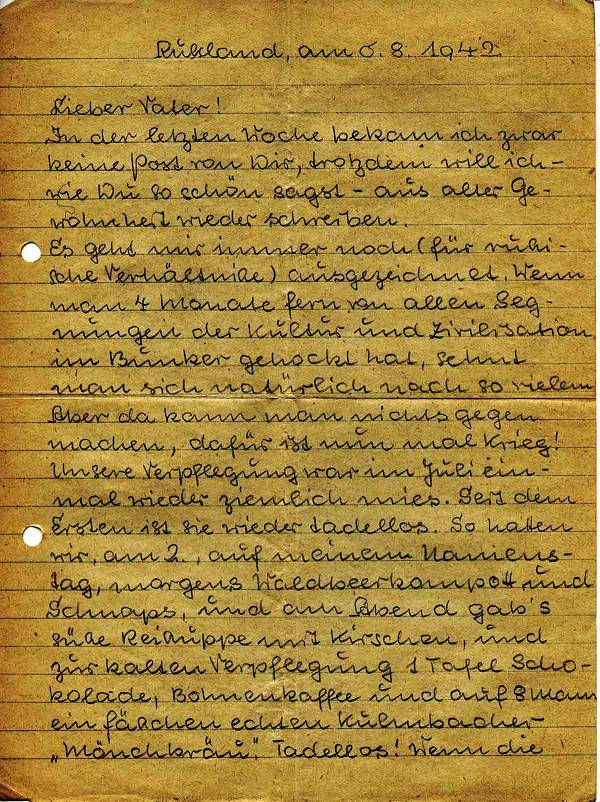 Rußland, am 6.8.1942
Lieber Vater!
In der letzten Woche bekam ich zwar
keine Post von Dir, trotzdem will ich –
wie Du so schön sagst – aus alter Ge-
wohnheit wieder schreiben.
Es geht mir immer noch (für rußi-
sche Verhältniße) ausgezeichnet. Wenn
man 4 Monate fern von allen Seg-
nungen der Kultur und Zivilisation
im Bunker gehockt hat, sehnt
man sich natürlich nach so vielem
Aber da kann man nichts gegen
machen, dafür ist nun mal Krieg!
Unsere Verpflegung war im Juli ein-
mal wieder ziemlich mies. Seit dem
Ersten ist sie wieder tadellos. So hatten
wir, am 2., auf meinem Namens-
tag, morgens Waldbeerkompott und
Schnaps, und am Abend gab's
süße Reißuppe mit Kirschen, und
zur kalten Verpflegung 1 Tafel Scho-
kolade, Bohnenkaffee und auf 8 Mann
ein Fäßchen echten Kulmbacher
„Mönchbräu". Tadellos! Wenn die